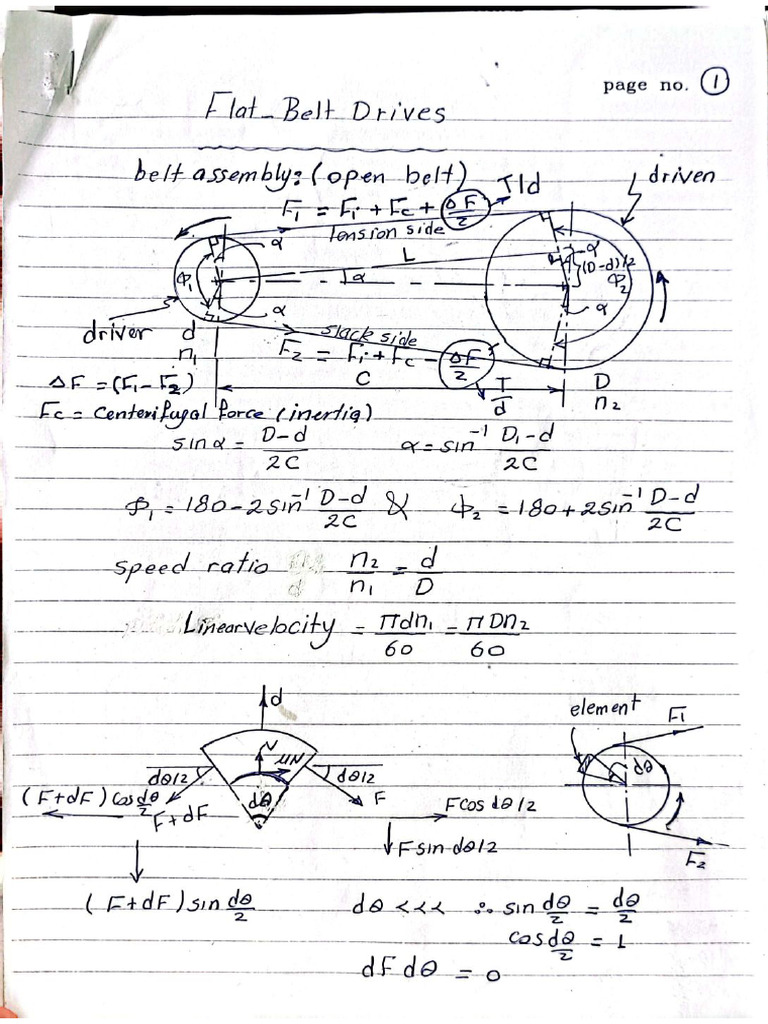 page no. 1
Flat-Belt Drives
belt assembly: (open belt)
T/d
driven
F₁ = Fi + Fc + ΔF/2
Tension side
α
L
α
(D-d)/2
Φ₁
α
Φ₂
α
α
driver
d
n₁
slack side
F₂ = Fi + Fc - ΔF/2
ΔF = (F₁-F₂)
C
T/d
D
n₂
Fc = Centerifugal force (inertia)
sinα = D-d/2C α = sin⁻¹ D₁-d/2C
Φ₁ = 180 - 2 sin⁻¹ D-d/2C & Φ₂ = 180 + 2 sin⁻¹ D-d/2C
speed ratio n₂/n₁ = d/D
Linear velocity = πdn₁/60 = πDn₂/60
d
element
F₁
N
μN
dθ/2
dθ/2
dθ
dθ
(F+dF) cos dθ/2
F+dF
F
F cos dθ/2
F sin dθ/2
F₂
(F+dF) sin dθ/2
dθ <<< ∴ sin dθ/2 = dθ/2
cos dθ/2 = 1
dF dθ = 0